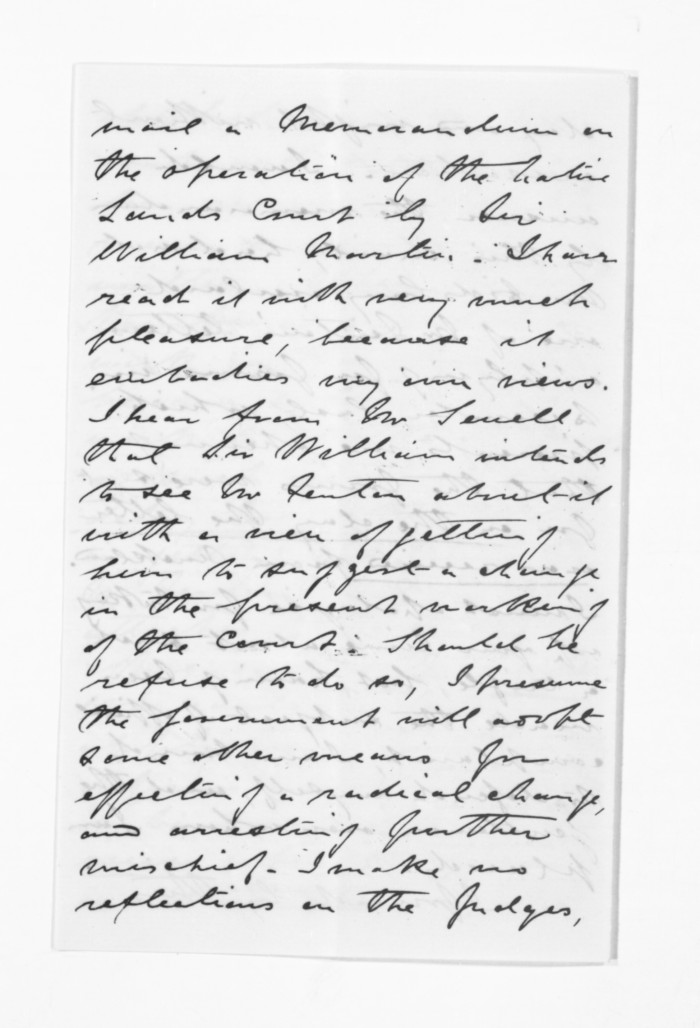 mail a Memorandum on
the operation of the Native
Lands Court by Sir
William Martin. I have
read it with very much
pleasure, because it
embodies my own views.
I hear from Mr Sewell
that Sir William intends
to see Mr Fenton about it
with a view of getting
him to suggest a change
in the present working
of the Court. Should he
refuse to do so, I presume
the Government will adopt
some other means for
effecting a radical change,
and arresting further
mischief. I make no
reflections on the Judges,